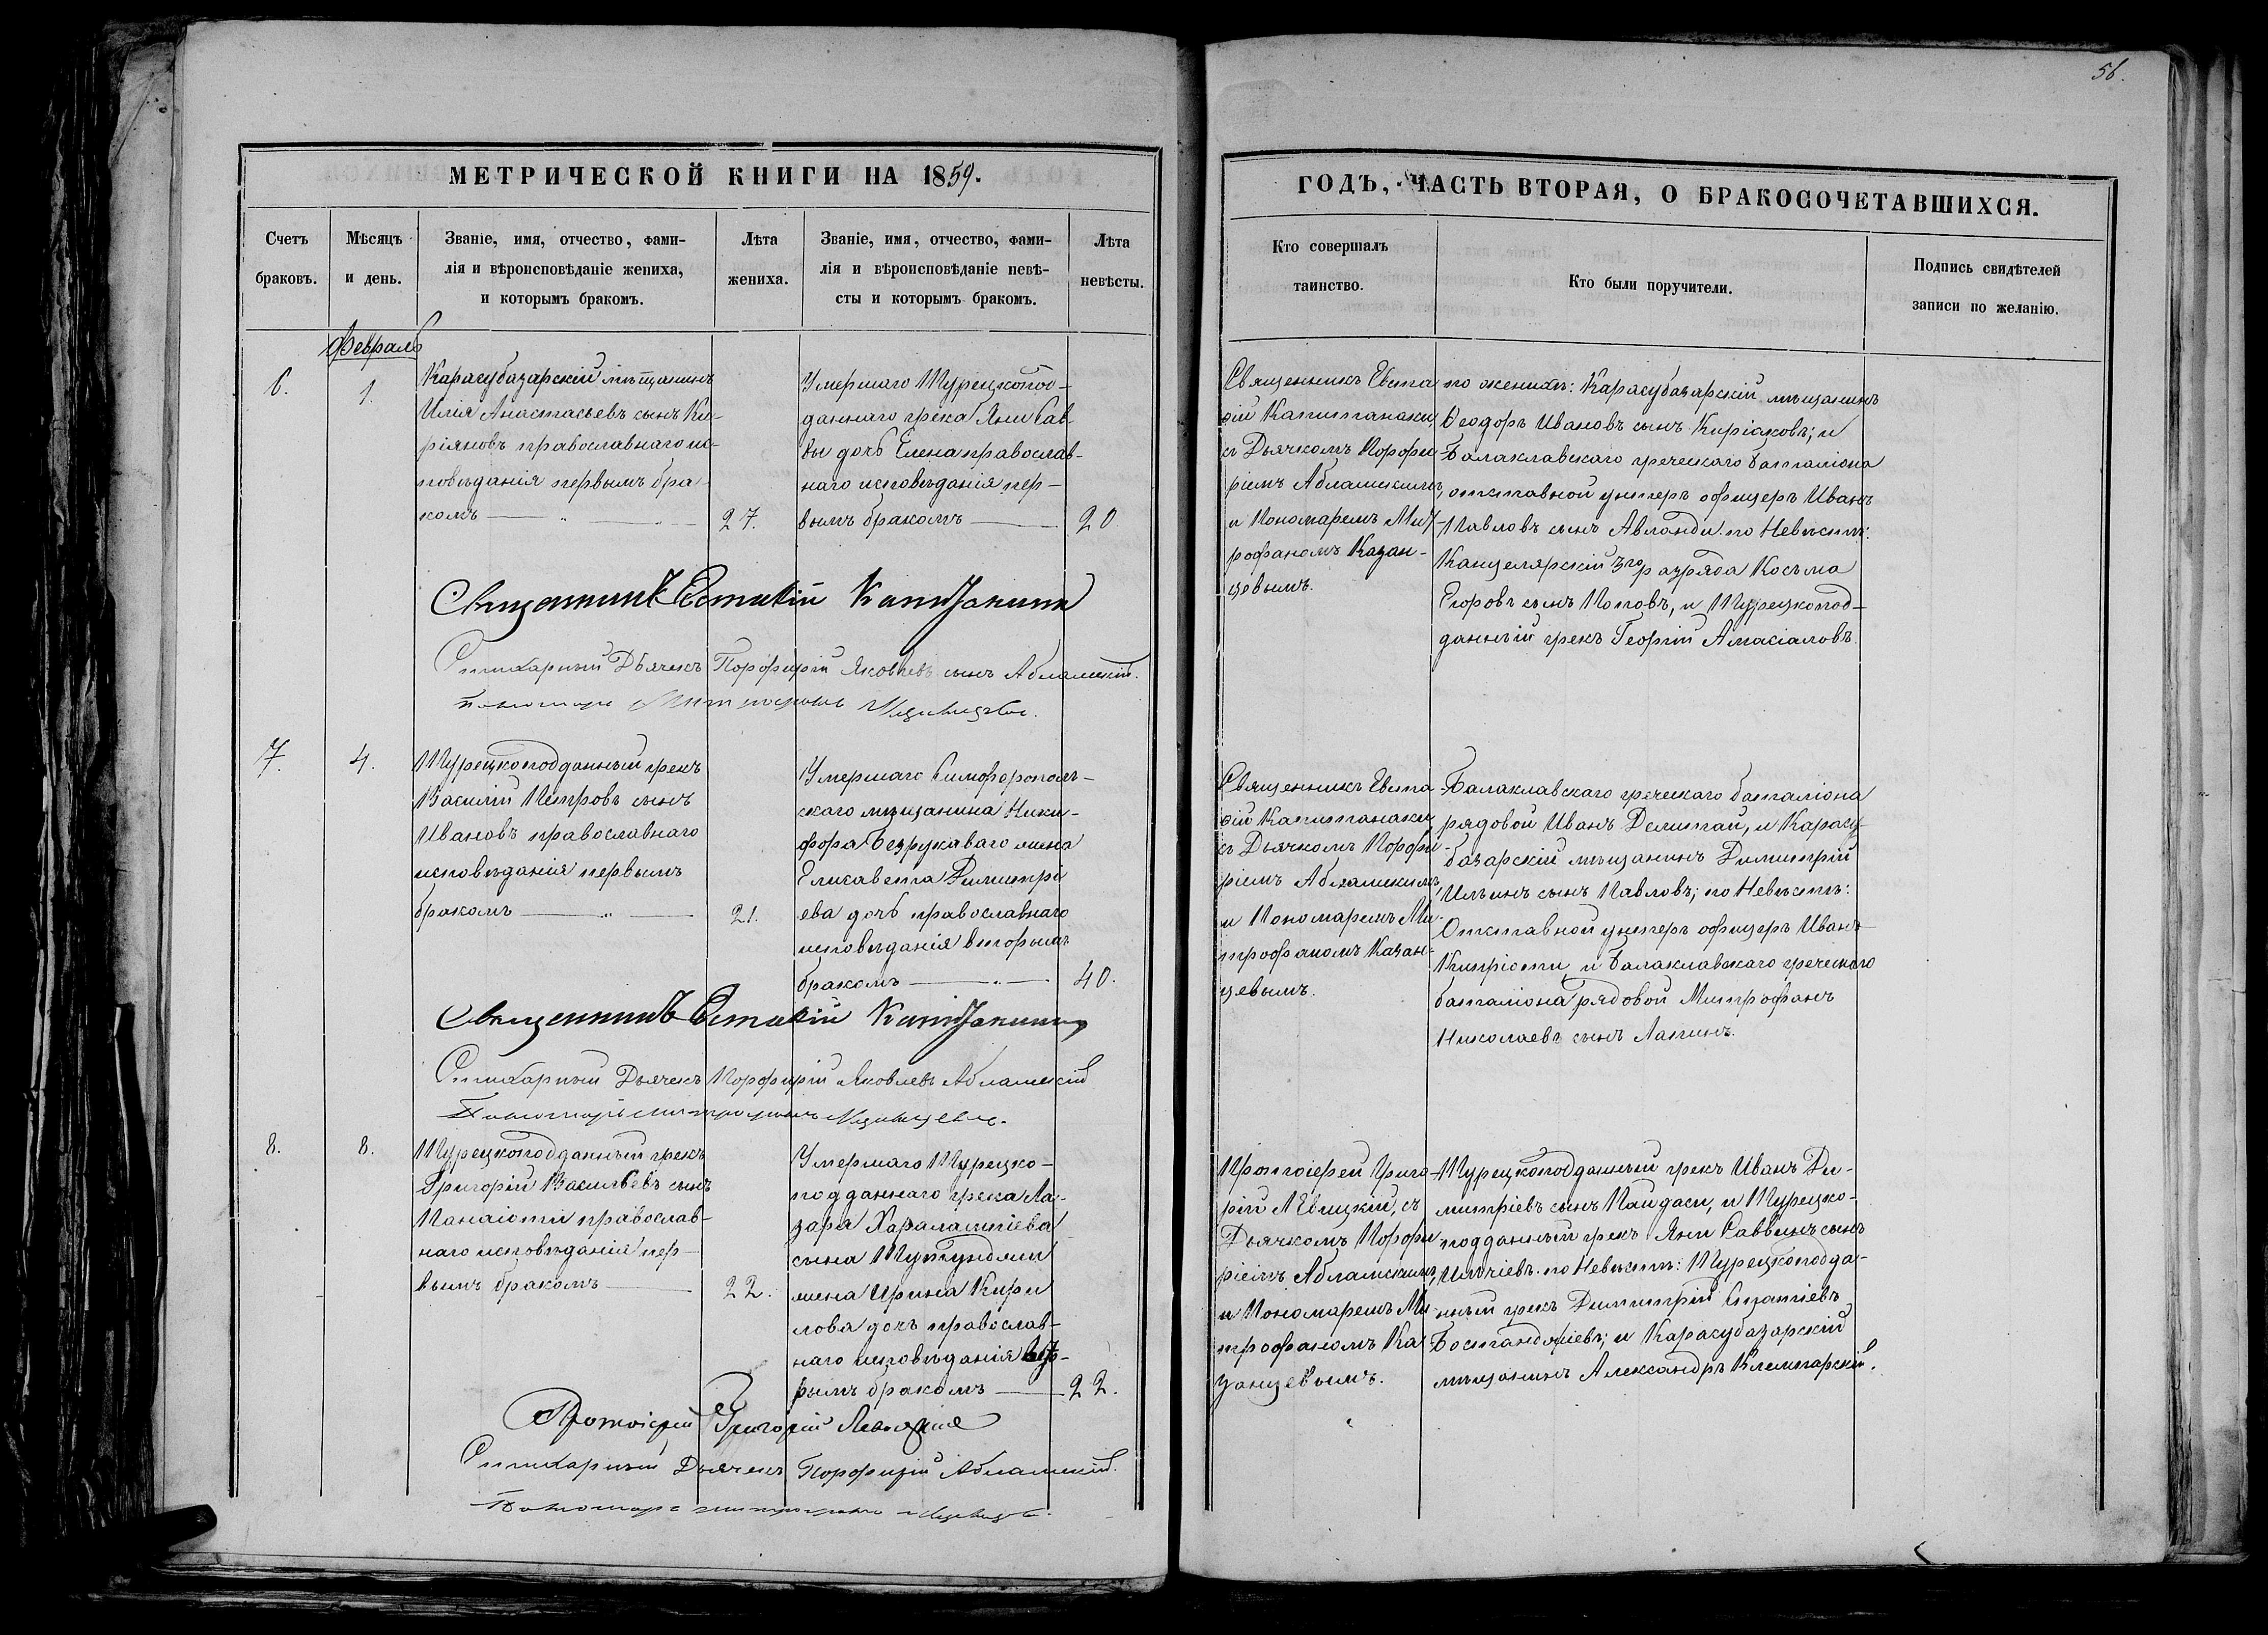 56.
МЕТРИЧЕСКОЙ КНИГИ НА 1859.
Счетъ
браковъ.
Мѣсяцъ
и день.
Званіе, имя, отчество, фами-
лія и вѣроисповѣданіе жениха,
и которымъ бракомъ.
Лѣта
жениха.
Званіе, имя, отчество, фами-
лія и вѣроисповѣданіе невѣ-
сты и которымъ бракомъ.
Лѣта
невѣсты.
ГОДЪ, ЧАСТЬ ВТОРАЯ, О БРАКОСОЧЕТАВШИХСЯ.
Кто совершалъ
таинство.
Кто были поручители.
Подпись свидѣтелей
записи по желанію.
Февраль
6.
1.
Карасубазарскій мѣщанинъ
Илія Анастасьевъ сынъ Ки-
ріяновъ православнаго ис-
повѣданія первымъ бра-
комъ
27.
Умершаго Турецкопод-
даннаго грека Яни Сав-
вы дочь Елена православ-
наго исповѣданія пер-
вымъ бракомъ
20
Священникъ Евста
фій Капитанаки,
съ Дьячкомъ Порфи
ріемъ Абламскимъ,
и Пономаремъ Мит-
рофаномъ Казан-
цевымъ.
по женихѣ: Карасубазарскій мѣщанинъ
Ѳеодоръ Ивановъ сынъ Киріаковъ; и
Балаклавскаго греческаго баталіона
отставной унтеръ офицеръ Иванъ
Павловъ сынъ Авланди. по Невѣстѣ:
Канцелярскій 3го разряда Косьма
Егоровъ сынъ Поповъ, и Турецкопод-
данный грекъ Георгій Амасіаловъ.
Священникъ Евстафій Капитанаки
Стихарный Дьячекъ Порфирій Яковлевъ сынъ Абламскій.
Пономарь Митрофанъ Казанцевъ.
7.
4.
Турецкоподданный грекъ
Василій Петровъ сынъ
Ивановъ православнаго
исповѣданія первымъ
бракомъ
21.
Умершаго Симферополь-
скаго мѣщанина Ники-
фора Безрукаваго жена
Елисавета Димитрі
ева дочь православнаго
исповѣданія вторымъ
бракомъ
40.
Священникъ Евста
фій Капитанаки
съ Дьячкомъ Порфи-
ріемъ Абламскимъ,
и Пономаремъ Ми-
трофаномъ Казан-
цевымъ.
Балаклавскаго греческаго баталіона
рядовой Иванъ Делитай, и Карасу-
базарскій мѣщанинъ Димитрій
Ильинъ сынъ Павловъ; по Невѣстѣ:
Отставной унтеръ офицеръ Иванъ
Кипріоти, и Балаклавскаго греческаго
баталіона рядовой Митрофанъ
Николаевъ сынъ Лапинъ.
Священникъ Евстафій Капитанаки
Стихарный Дьячекъ Порфирій Яковлевъ Абламскій
Пономарь Митрофанъ Казанцевъ.
8.
8.
Турецкоподданный грекъ
Григорій Васильевъ сынъ
Панаіоти православ-
наго исповѣданія пер-
вымъ бракомъ
22.
Умершаго Турецко-
подданнаго грека Ла-
заря Харалампіева
сына Тутунджи
жена Ирина Кири
лова дочь православ-
наго исповѣданія вто-
рымъ бракомъ
22.
Протоіерей Григо
рій Левицкій, съ
Дьячкомъ Порфи
ріемъ Абламскимъ,
и Пономаремъ Ми-
трофаномъ Ка
занцевымъ.
Турецкоподданный грекъ Иванъ Ди-
митріевъ сынъ Паидаси, и Турецко-
подданный грекъ Яни Саввинъ сынъ
Ильчіевъ. по Невѣстѣ: Турецкоподда-
нный грекъ Димитрій
Бостанджіевъ; и Карасубазарскій
мѣщанинъ Александръ
Протоіерей Григорій Левицкій
Стихарный Дьячекъ Порфирій Абламскій.
Пономарь Митрофанъ Казанцевъ.